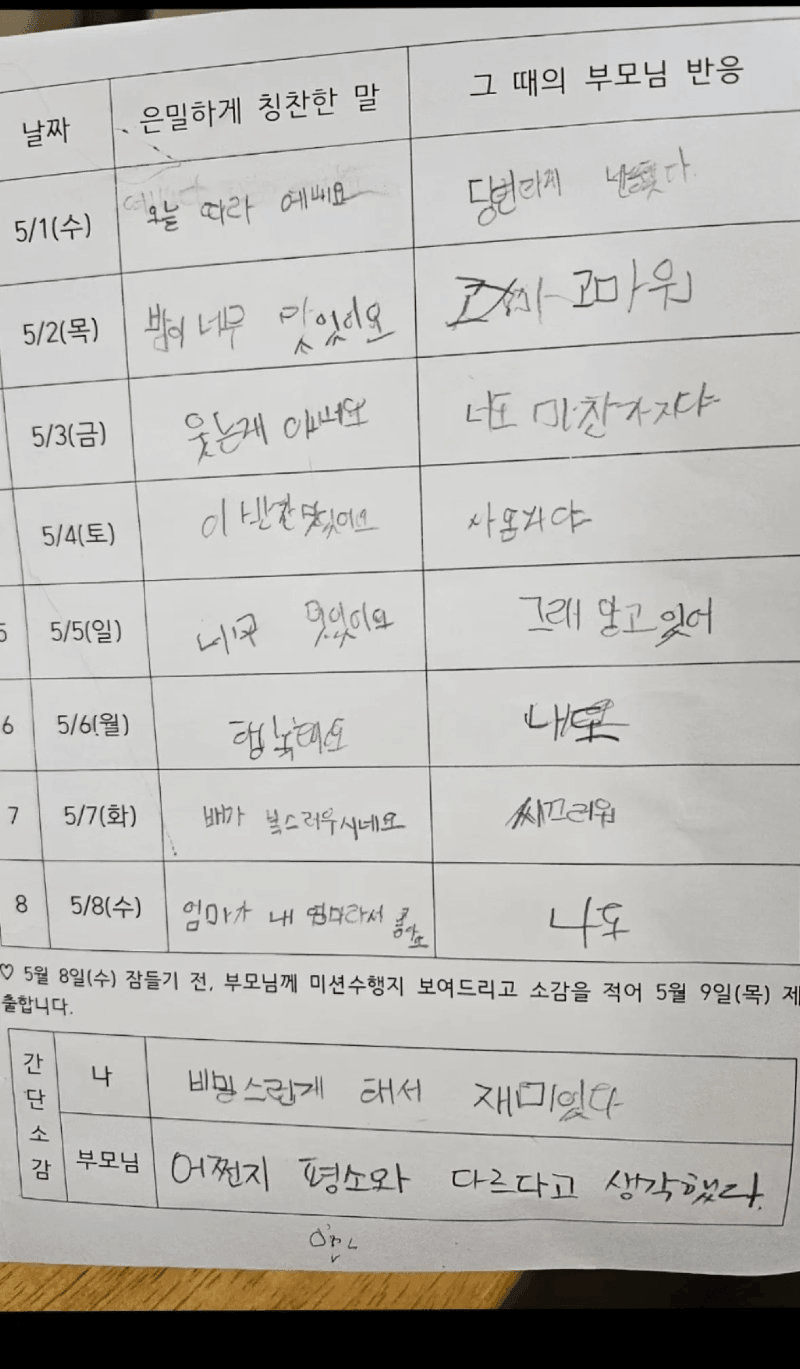 날짜 은밀하게 칭찬한 말 그 때의 부모님 반응
5/1(수) 오늘 따라 예뻐요
5/2(목) 밥이 너무 맛있어요 고마워
5/3(금) 웃는게 너도 마찬가지야
5/4(토) 이 반찬 맛있어요
5 5/5(일) 멋있어요 그래 알고 잇어
6 5/6(월) 행복해요
7 5/7(화) 배가 복스러우시네요 씨끄러워
8 5/8(수) 엄마가 내 엄마라서 나도
♡ 5월 8일(수) 잠들기 전, 부모님께 미션수행지 보여드리고 소감을 적어 5월 9일(목) 제
출합니다.
간단소감
나 태서 재미있다
부모님 어쩐지 평소와 다르다고 생각했다.